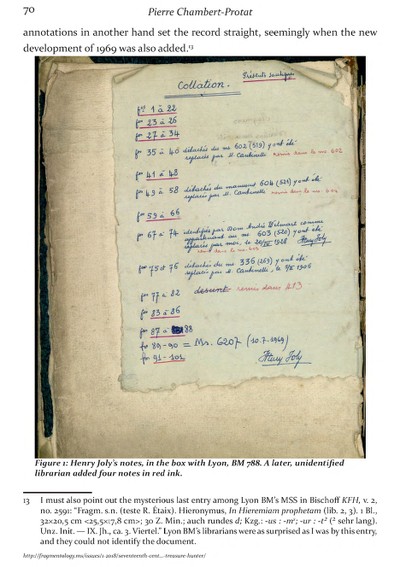 70
Pierre Chambert-Protat
annotations in another hand set the record straight, seemingly when the new
development of 1969 was also added.13
Collation.
fos 1 à 22
fos 23 à 26
fos 27 à 34
fos 35 à 40 détachés du ms 602 (519) y ont été
replacés par M. Cantinelli remis dans le ms. 602
fos 41 à 48
fos 49 à 58 détachés du manuscrit 604 (521) y ont été
replacés par M. Cantinelli
fos 59 à 66
fos 67 à 74 identifiés par Dom André Wilmart comme
appartenant au ms 603 (520) y ont été
replacés par moi, le 1928 Henry Joly
fos 75 et 76 détachés du ms 336 (263) y ont été
replacés par M. Cantinelli, le 1906
fos 77 à 82 desunt remis dans 413
fos 83 à 86
fos 87 à 88
fos 89-90 = Ms. 6207 (10.7.1969)
fos 91-101
Henry Joly
Figure 1: Henry Joly's notes, in the box with Lyon, BM 788. A later, unidentified
librarian added four notes in red ink.
13 I must also point out the mysterious last entry among Lyon BM's MSS in Bischoff KFH, v. 2,
no. 2591: "Fragm. s.n. (teste R. Étaix). Hieronymus, In Hieremian prophetam (lib. 2, 3). 1 Bl.,
32×20,5 cm <25,5×17,8 cm>; 30 Z. Min.; auch rundes d; Kzg.: -us : -m; -ur : -t² (² sehr lang).
Unz. Init. — IX. Jh., ca. 3. Viertel." Lyon BM's librarians were as surprised as I was by this entry,
and they could not identify the document.